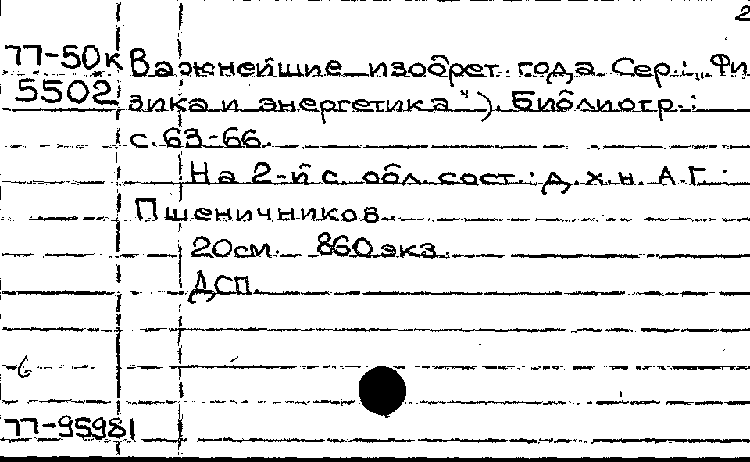 2
77-50к Важнейшие изобрет. года. Сер.: „Фи
5502 зика и энергетика“). Библиогр.:
с. 63-66.
На 2-й с. обл. сост.: д. х. н. А. Г.
Пшеничников.
20 см. 860 экз.
ДСП.
6
77-95981